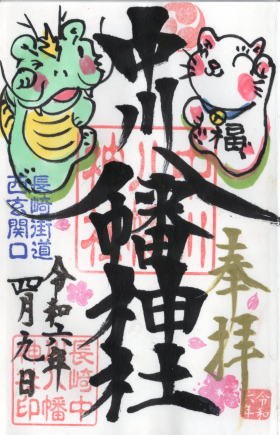 奉拝
中川八幡神社
福
長崎街道
西玄関口
令和六年
四月元日
中川
八幡
神社
長崎中
川八幡
神社印
令和
六年